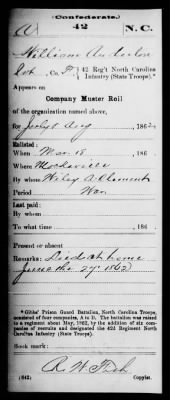 (Confederate.)
A 42 N.C.
William Anderson
Pvt., Co. F, 42 Reg't North Carolina
Infantry (State Troops).*
Appears on
Company Muster Roll
of the organization named above,
for July & Aug, 1862.
Enlisted:
When Mar. 18, 186
Where Mocksville
By whom Wiley A. Clement
Period War
Last paid:
By whom
To what time, 186
Present or absent
Remarks: Died at home
June the 27" 1862
*Gibbs' Prison Guard Battalion, North Carolina Troops,
consisted of four companies, A to D. The battalion was raised
to a regiment about May, 1862, by the addition of six com-
panies of recruits and designated the 42d Regiment North
Carolina Infantry (State Troops).
Book mark:
R. W.
(642) Copyist.